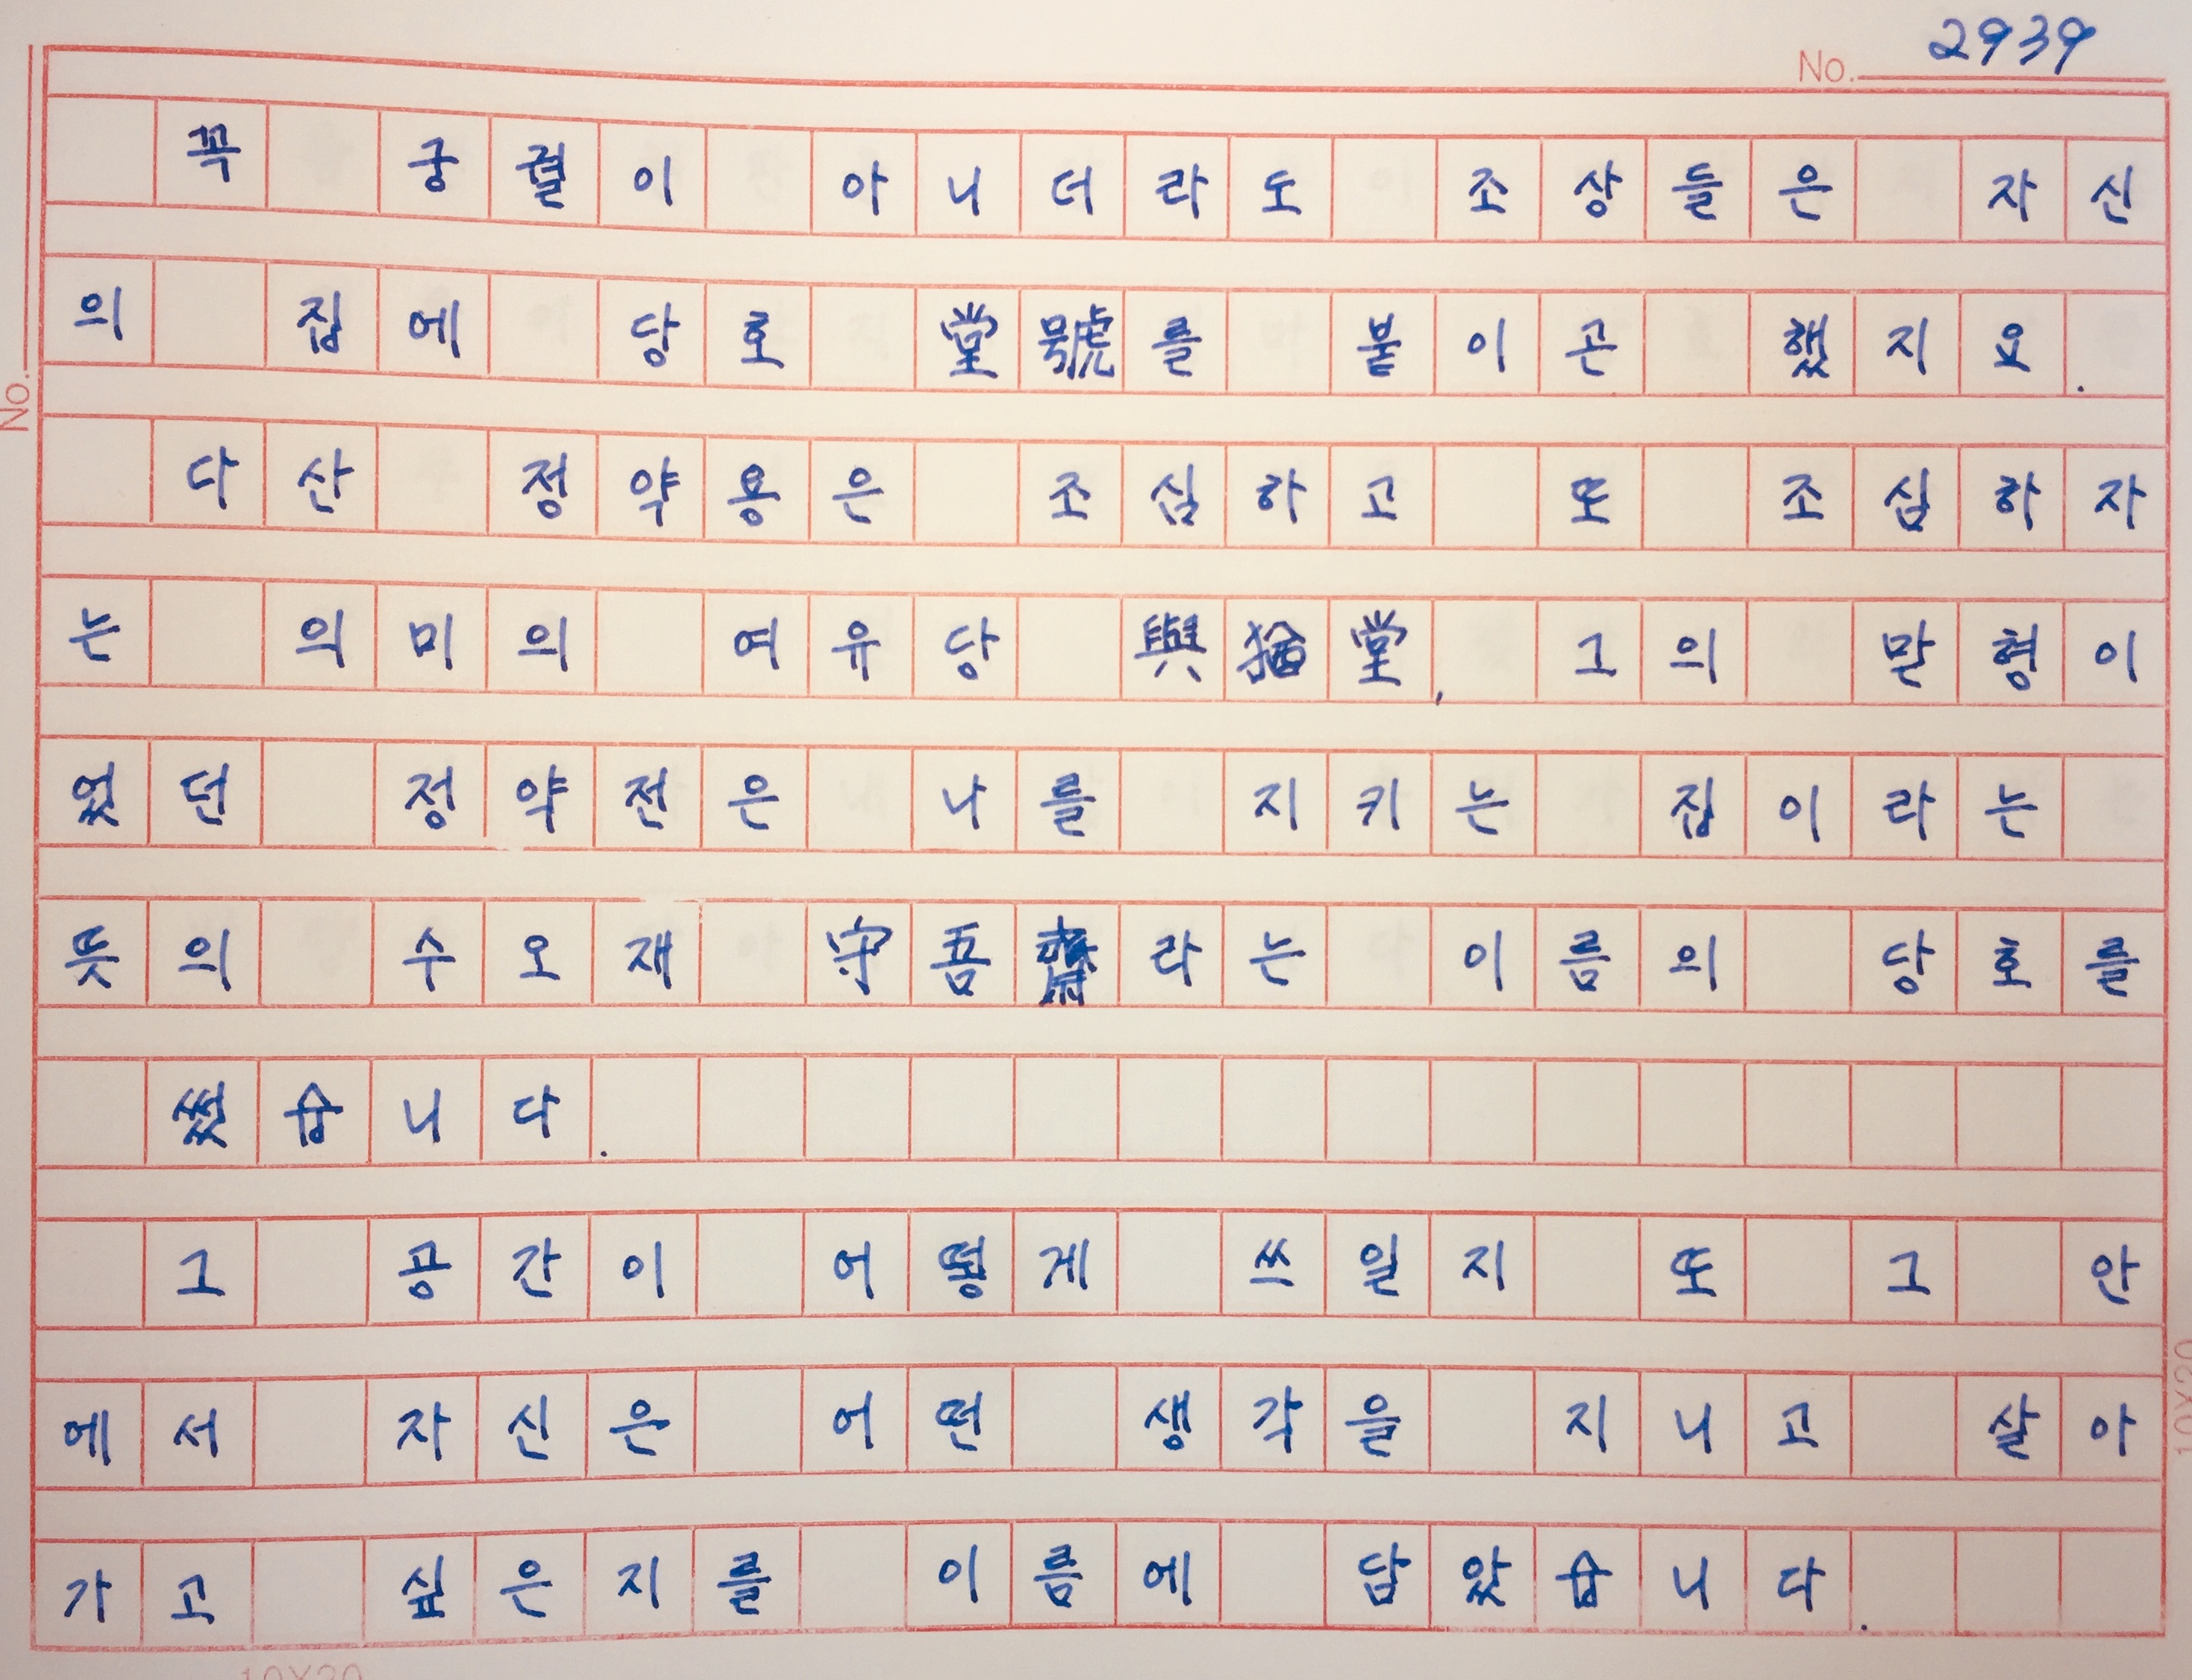 No. 2939
꼭 궁궐이 아니더라도 조상들은 자신
의 집에 당호 堂號를 붙이곤 했지요.
다산 정약용은 조심하고 또 조심하자
는 의미의 여유당 與猶堂, 그의 맏형이
었던 정약전은 나를 지키는 집이라는
뜻의 수오재 守吾齋라는 이름의 당호를
썼습니다.
그 공간이 어떻게 쓰일지 또 그 안
에서 자신은 어떤 생각을 지니고 살아
가고 싶은지를 이름에 담았습니다.
No.
10X20
10X20